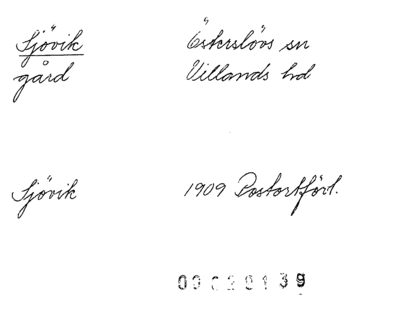 Sjövik Österslövs sn
gård Villands hd
Sjövik 1909 Postortfört.